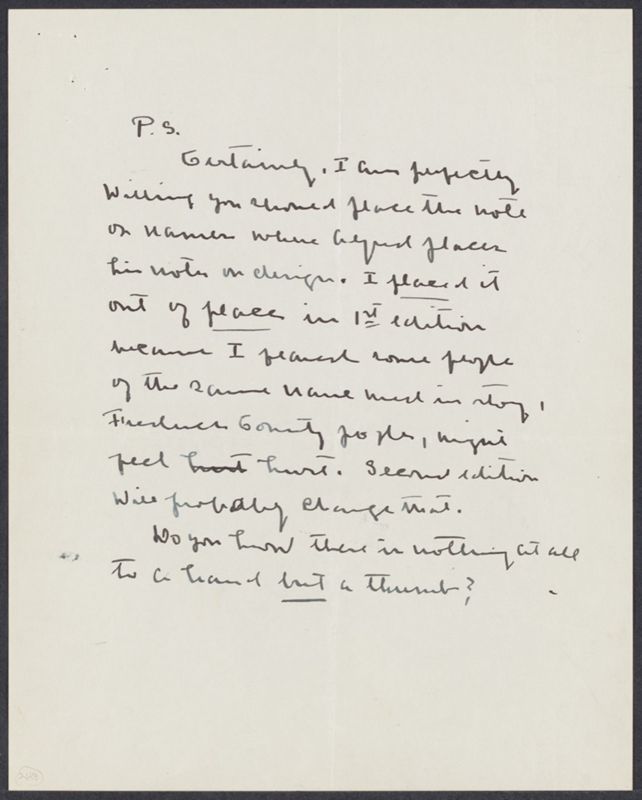 P.S.
Certainly, I am perfectly
willing you should place the note
on names where Alfred places
his notes on design. I placed it
out of place in 1st edition
because I feared some people
of the same name used in story,
Frederick County people, might
feel hurt hurt. Second edition
will probably change that.
Do you know there is nothing at all
to a hand but a thumb?